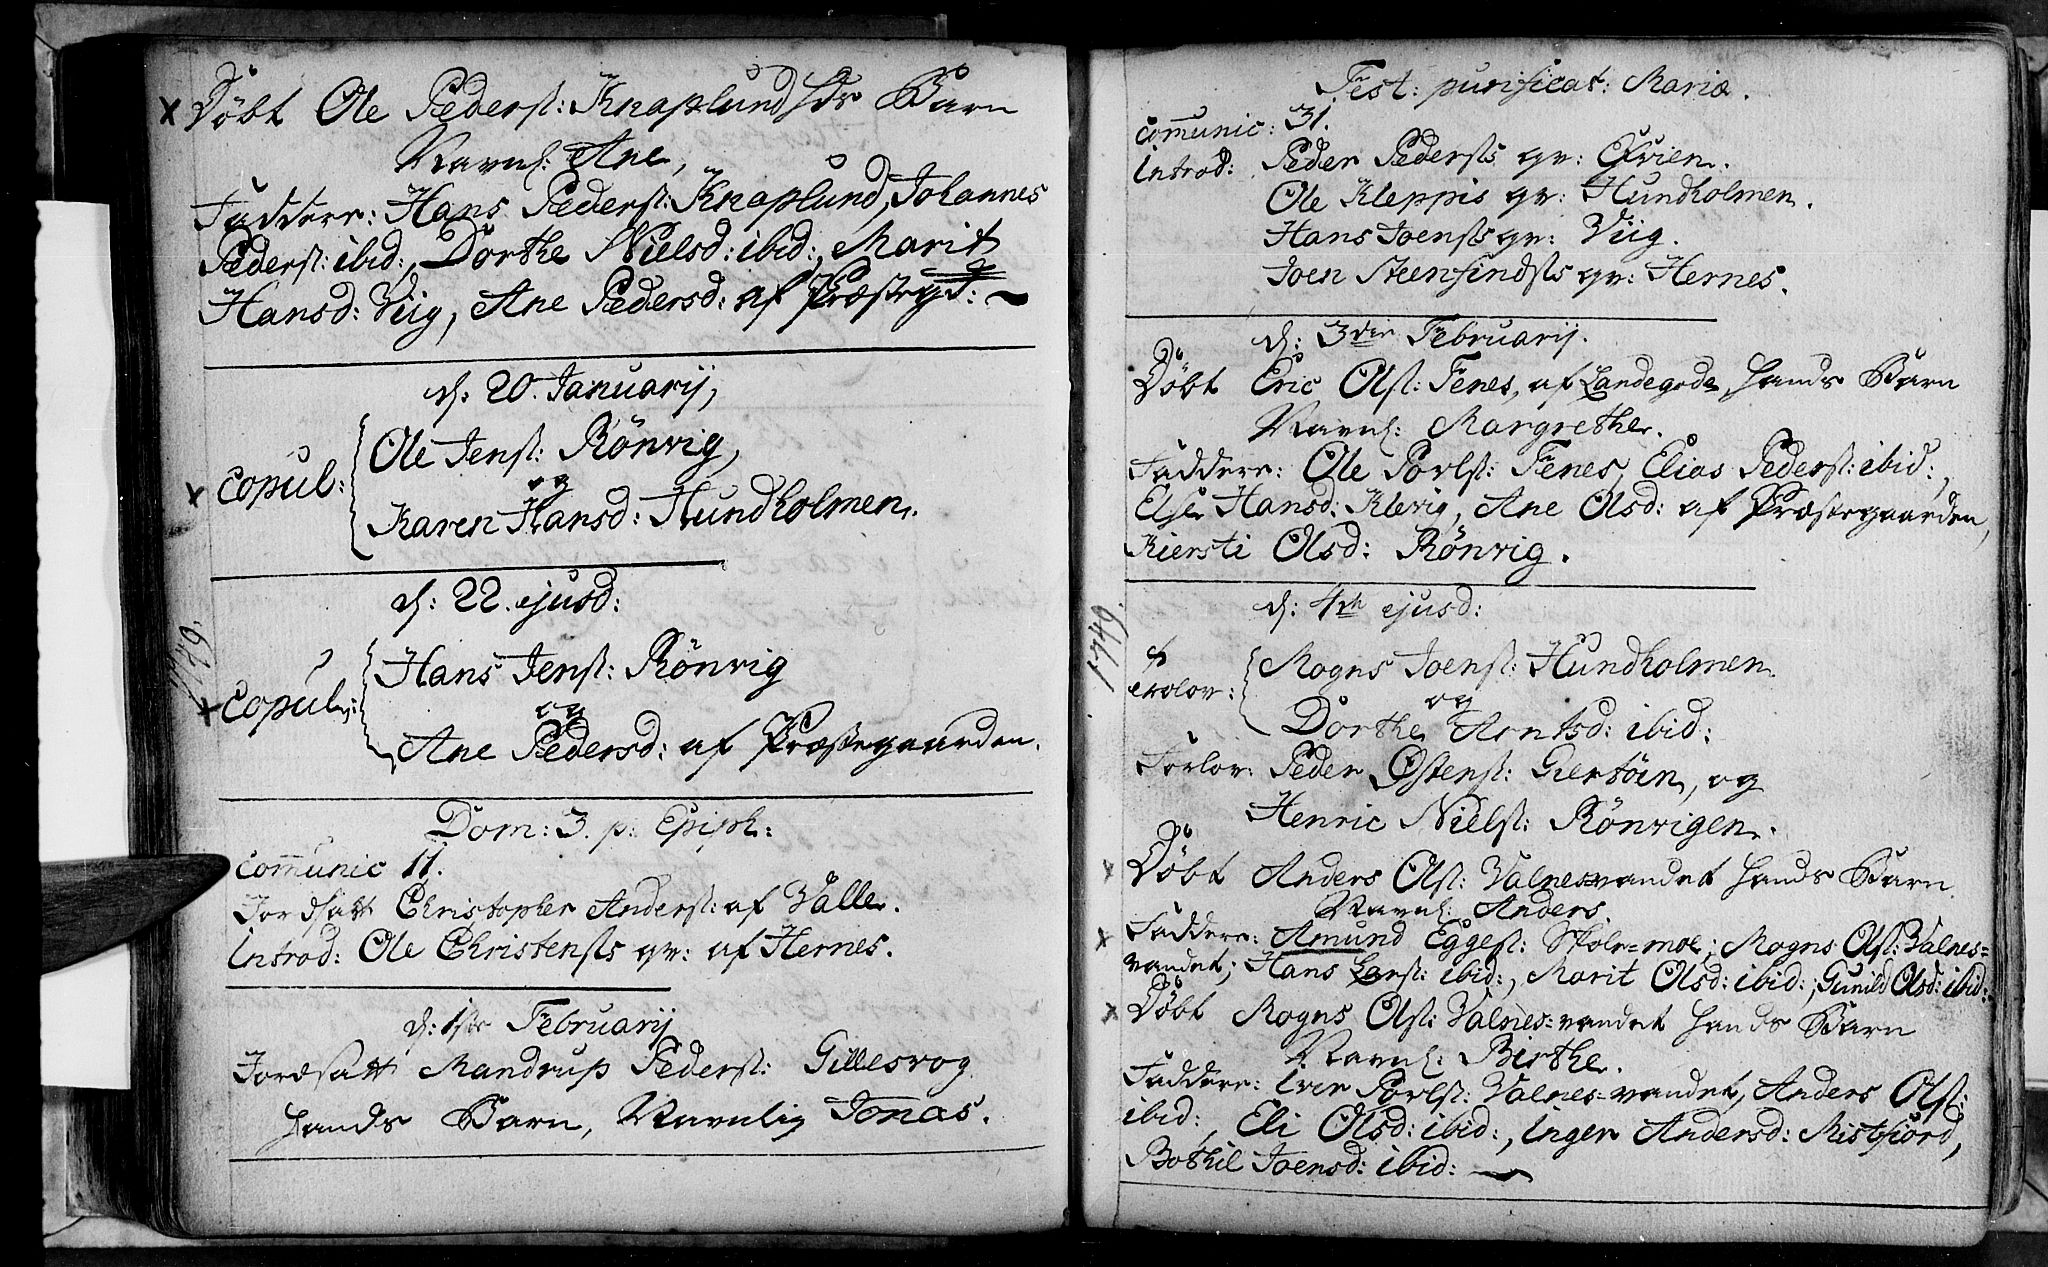 Døbt Ole Pederss: Knaplund hs Barn
Navnl: Ane,
Faddere: Hans Pederss: Knaplund, Johannes
Pederss: ibid:, Dorthe Nielsd: ibid:, Marit
Hansd: Viig, Ane Pedersd: af Præstegd:
d: 20. Januarij,
Copul: Ole Jenss: Rönvig,
og
Karen Hansd: Hundholmen.
d: 22. ejusd:
1749.
Copul: Hans Jenss: Rönvig
og
Ane Pedersd: af Præstegaarden.
Dom: 3. p: Epiph:
Comunic 11.
Jordsatt Christopher Anderss: af Valle.
Introd: Ole Christenss qv: af Hernes.
d: 1ste Februarij
Jordsatt Mandrup Pederss: Gillesvog
hands Barn, Navnlig Jonas.
Fest: purificat: Mariæ.
Comunic: 31.
Introd: Peder Pederss qv:
Ole Kleppis qv: Hundholmen.
Hans Joenss qv: Viig.
Joen Steensindss qv: Hernes.
d: 3die Februarij.
Døbt Eric Olss: Fenes, af Landegode, hands Barn
Navnl: Margrethe.
Faddere: Ole Porlss: Fenes, Elias Pederss: ibid:,
Else Hansd: Klevig, Ane Olsd: af Præstegaarden,
Kiersti Olsd: Rönvig.
d: 4de ejusd:
1749.
Trolov: Mogns Joenss: Hundholmen
og
Dorthe Arntsd: ibid:
Forlov: Peder Østenss: Giertöen, og
Henric Nielss: Rönvigen.
Døbt Anders Olss: Valnesvandet hands Barn
Navnl: Anders.
Faddere: Amund Eggess: Skole=moe; Mogns Olss: Valnes=
vandet; Hans Larss: ibid:, Marit Olsd: ibid:; Gunild Olsd: ibid:
Døbt Mogns Olss: Valnes=vandet hands Barn
Navnl: Birthe.
Faddere: Iver Porlss: Valnes=vandet, Anders Olss:
ibid:, Eli Olsd: ibid:, Inger Andersd: Mistfiord,
Bothil Joensd: ibid: